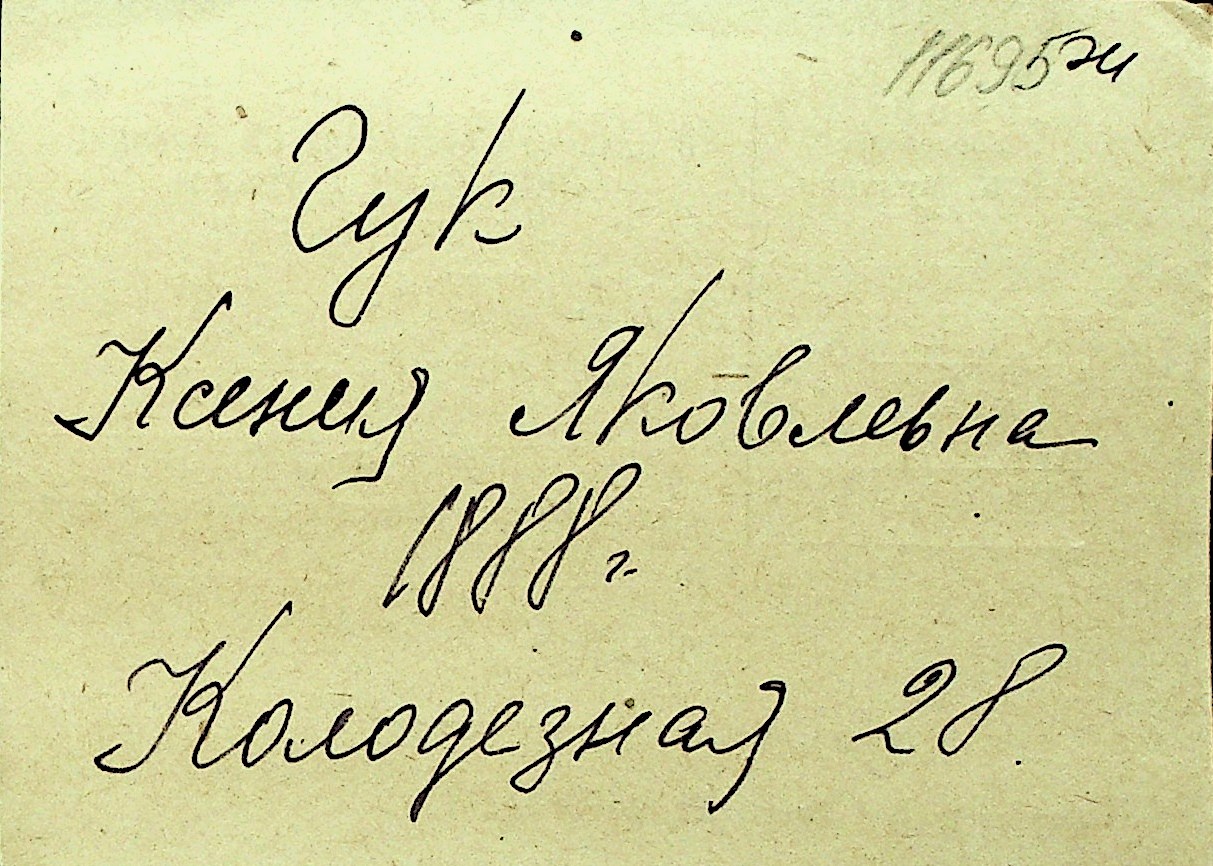 11695 ж
Гук
Ксения Яковлевна
1888 г.
Колодезная 28.